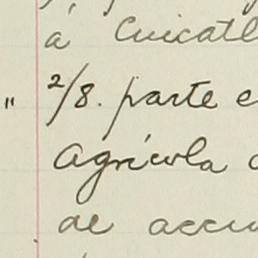 á Cuicatl
" 2/8. parte e
Agrícola
de accu